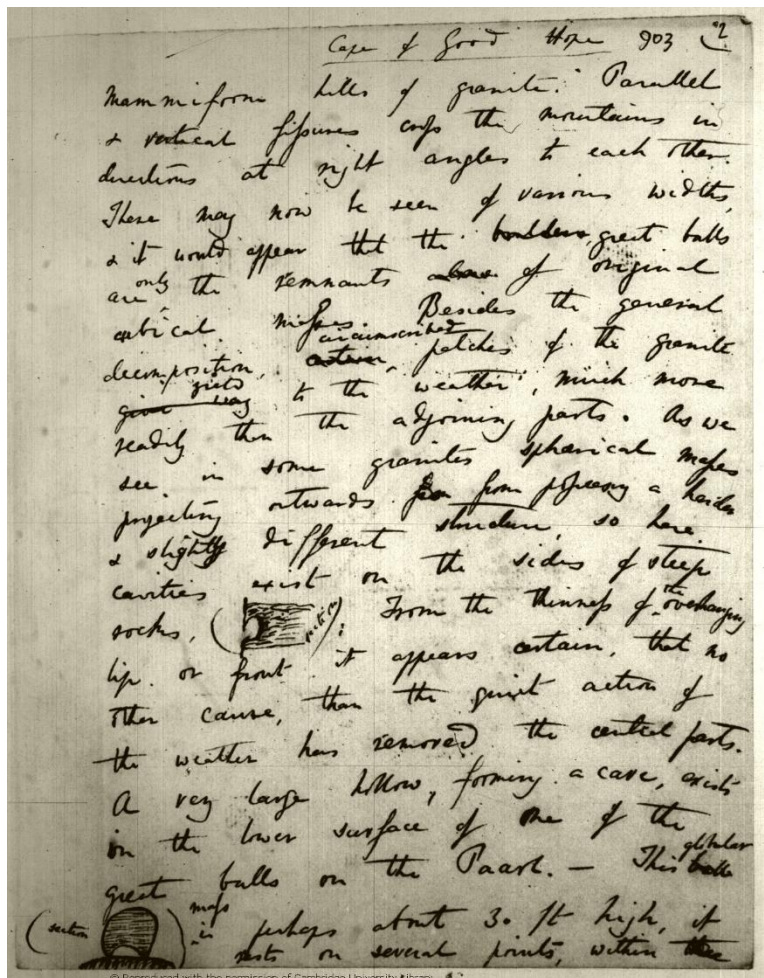 Cape of Good Hope 903 (2
mammiform hills of granite. Parallel
& vertical fissures cross the mountains in
directions at right angles to each other.
These may now be seen of various widths,
& it would appear that the boulders great balls
are only the remnants of original
cubical masses. Besides the general
decomposition, certain circumscribed patches of the granite
give way yield to the weather, much more
readily than the adjoining parts. As we
see in some granites spherical masses
projecting outwards from possessing a harder
& slightly different structure, so here
cavities exist on the sides of steep
rocks, (section). From the thinness of the overhanging
lip or front it appears certain, that no
other cause, than the quiet action of
the weather has removed the central parts.
A very large hollow, forming a cave, exists
on the lower surface of one of the
great balls on the Paarl. — This balls globular
(section ) mass is perhaps about 30 ft high, it
rests on several points, within
© Reproduced with the permission of Cambridge University Library